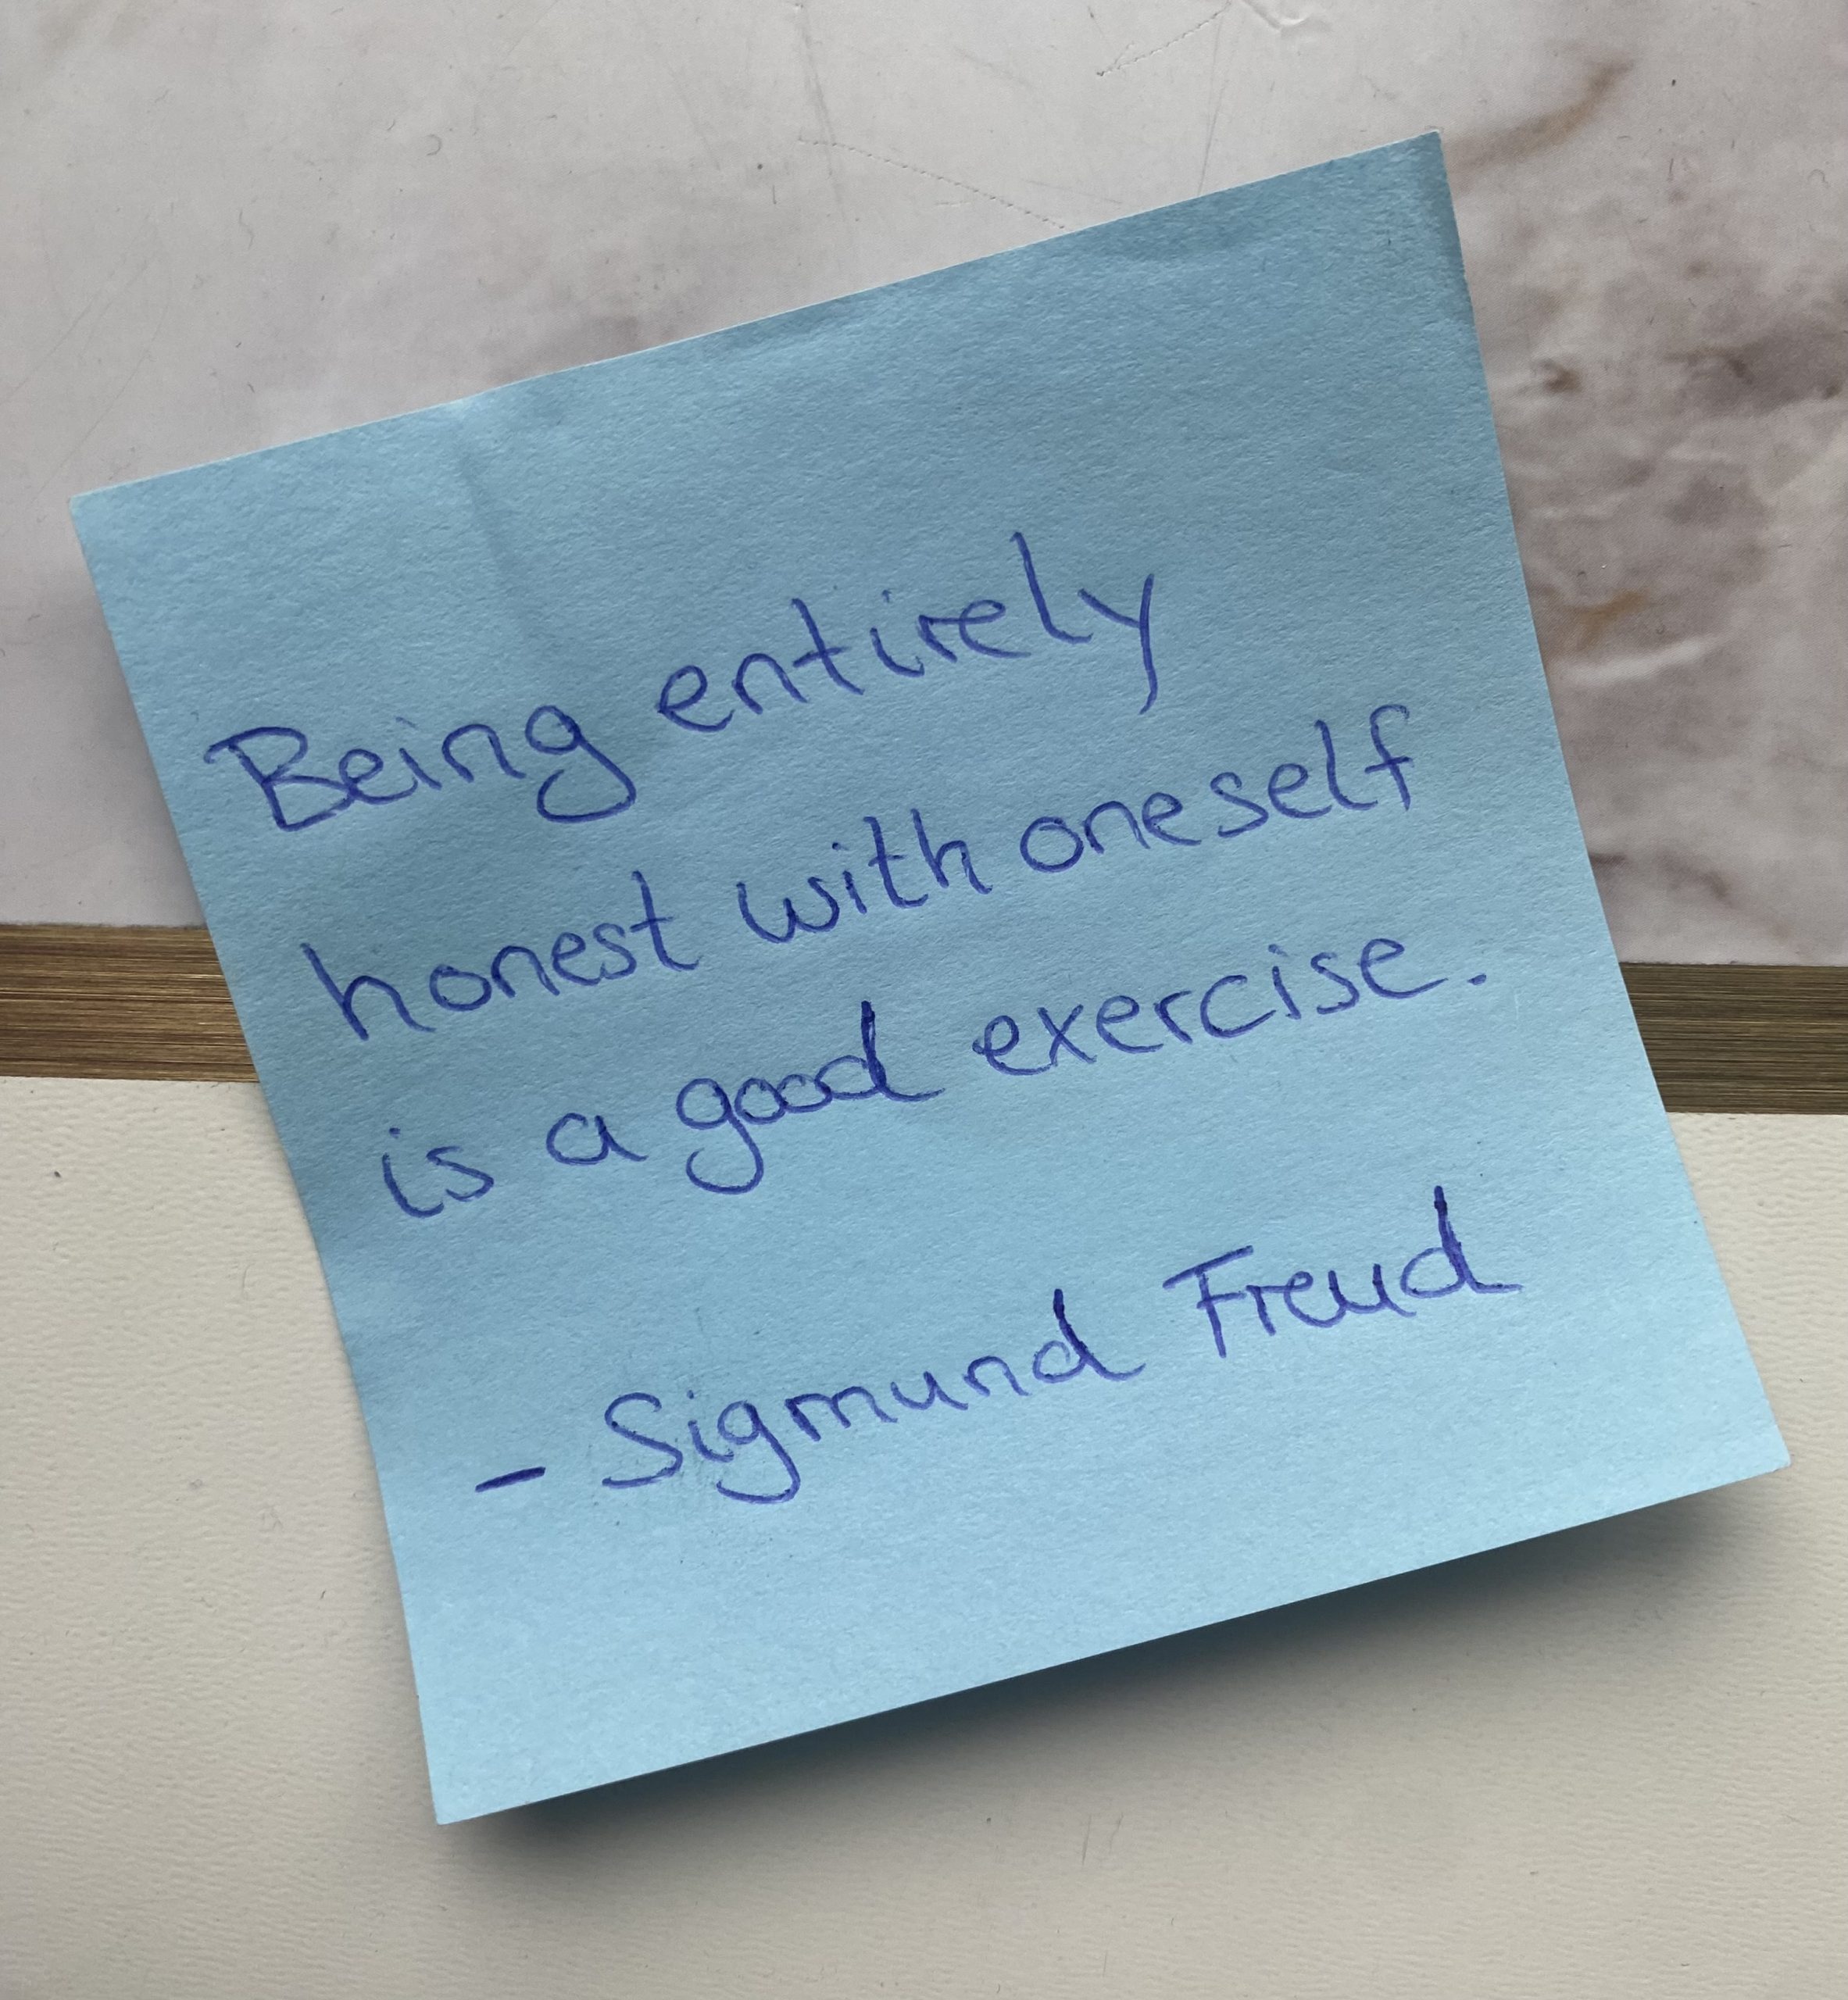 Being entirely
honest with oneself
is a good exercise.
- Sigmund Freud